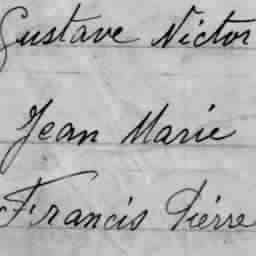 Gustave Victor
Jean Marie
Francis Pierre